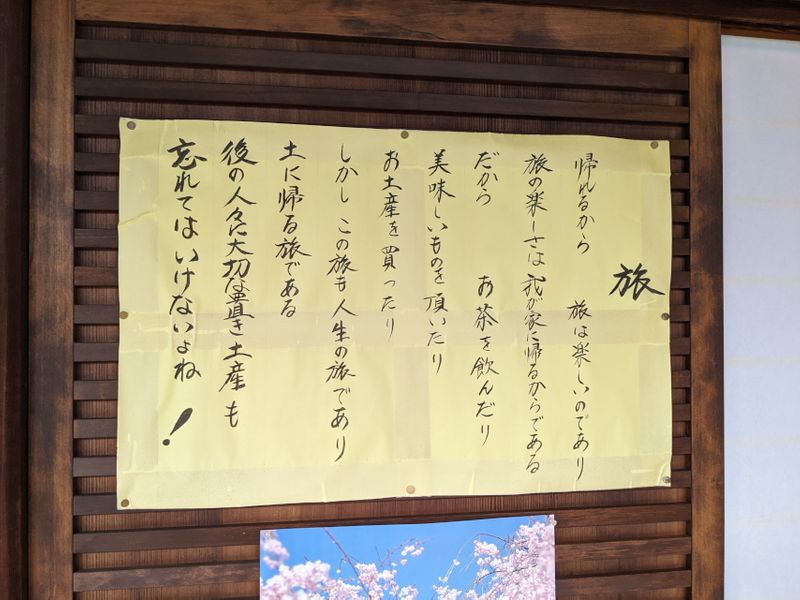 旅
帰れるから 旅は楽しいのであり
旅の楽しさは 我が家に帰るからである
だから お茶を飲んだり
美味しいものを 頂いたり
お土産を買ったり
しかし この旅も 人生の旅であり
土に帰る旅である
後の人々に大切な置き土産も
忘れてはいけないよね!